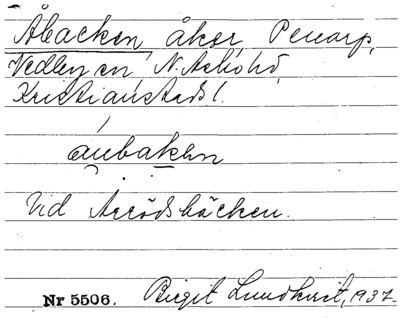 Åbacken, åker, Penarp,
Vedby sn, N. Åsbo hd,
Kristianstads l.
åubaken
Vid Arrödsbäcken.
Nr 5506. Birgit Lundkvist, 1937.